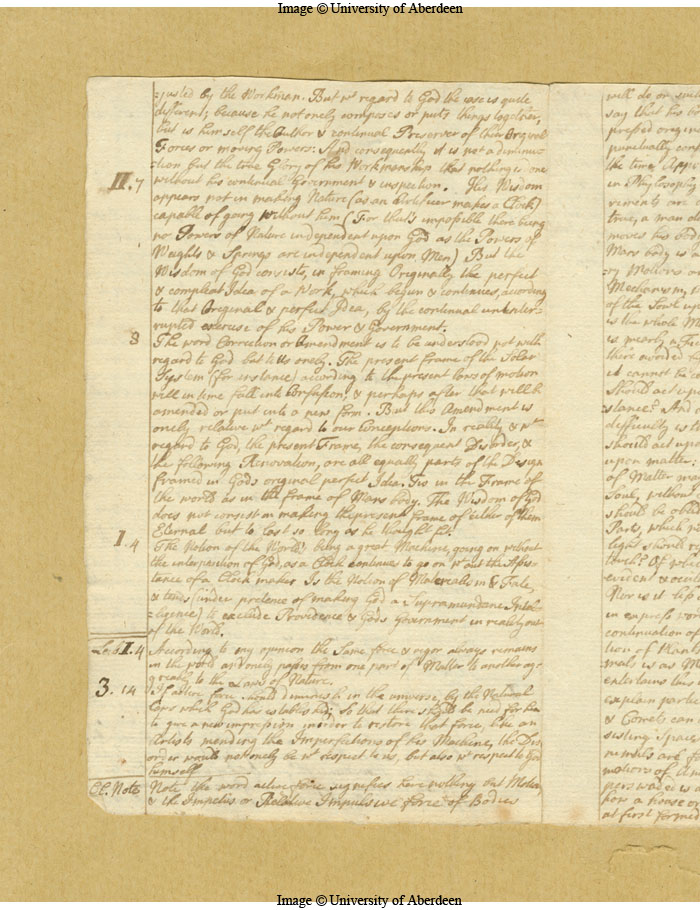 Image © University of Aberdeen
justed by the Workman. But wt regard to God the case is quite
different; because he not onely composes or puts things together,
but is himself the Author & continual Preserver of their Original
Forces or moving Powers: And consequently it is not a diminu=
tion but the true Glory of his Workmanship that nothing is done
II.7 without his continual Government & inspection. His Wisdom
appears not in making Nature (as an Artificer makes a Clock)
capable of going without him (For that's impossible there being
no Powers of Nature independent upon God as the Powers of
Weights & Springs are independent upon Men) But the
Wisdom of God consists, in framing Originally the perfect
& compleat Idea of a Work, which begun & continues, according
to that Original & perfect Idea, by the continual uninter=
rupted exercise of his Power & Government.
8 The word Correction or Amendment is to be understood not with
regard to God but to Us onely. The present frame of the Solar
System (for instance) according to the present laws of motion
will in time fall into Confusion, & perhaps after that will be
amended or put into a new form. But this Amendment is
onely relative wt regard to our Conceptions. In reality & wt
regard to God, the present Frame, the consequent Disorder, &
the following Renovation, are all equally parts of the Design
framed in Gods original perfect Idea. Tis in the Frame of
the world as in the frame of Mans body. The Wisdom of God
does not consist in making the present frame of either of them
Eternal but to last so long as he thought fit.
I.4 The Notion of the World's being a great Machine, going on without
the interposition of God, as a Clock continues to go on wtout the Assis=
tance of a Clock maker Is the Notion of Materialism & Fate,
& tends (under pretence of making God a Supramundane Intel=
=ligence) to exclude Providence & Gods Government in reality out
of the World.
II.4 According to my opinion the Same force & vigor always remains
in the world and onely passes from one part of Matter to another ag=
reeably to the Laws of Nature.
3. 14 If active force should diminish in the universe, by the Natural
Laws which God has established; So that there should be need for him
to give a new impression in order to restore that force, like an
Artists mending the Imperfections of his Machine, the Dis=
order would not onely be wt respect to us, but also wt respect to God
himself
Note Note the word active force signifies here nothing but Motion
& the Impetus or Relative Impulsive force of Bodies
will do or
say that his
original
in
true, a man
moves his body
Mans body is
Motions
Mechanism,
of the Soul
is the whole
there
it cannot be
Should act upon
stance? And
difficulty is
should act upon
upon matter:
of Matter
Soul, without
should be
Part, which
light should
touch? Of
evident &
Nor is it
in express
continuation of
tion of
is as
entertains
explain
& Comets can
sisting Space
are
motions of
is
how a house or
at first formed
Image © University of Aberdeen